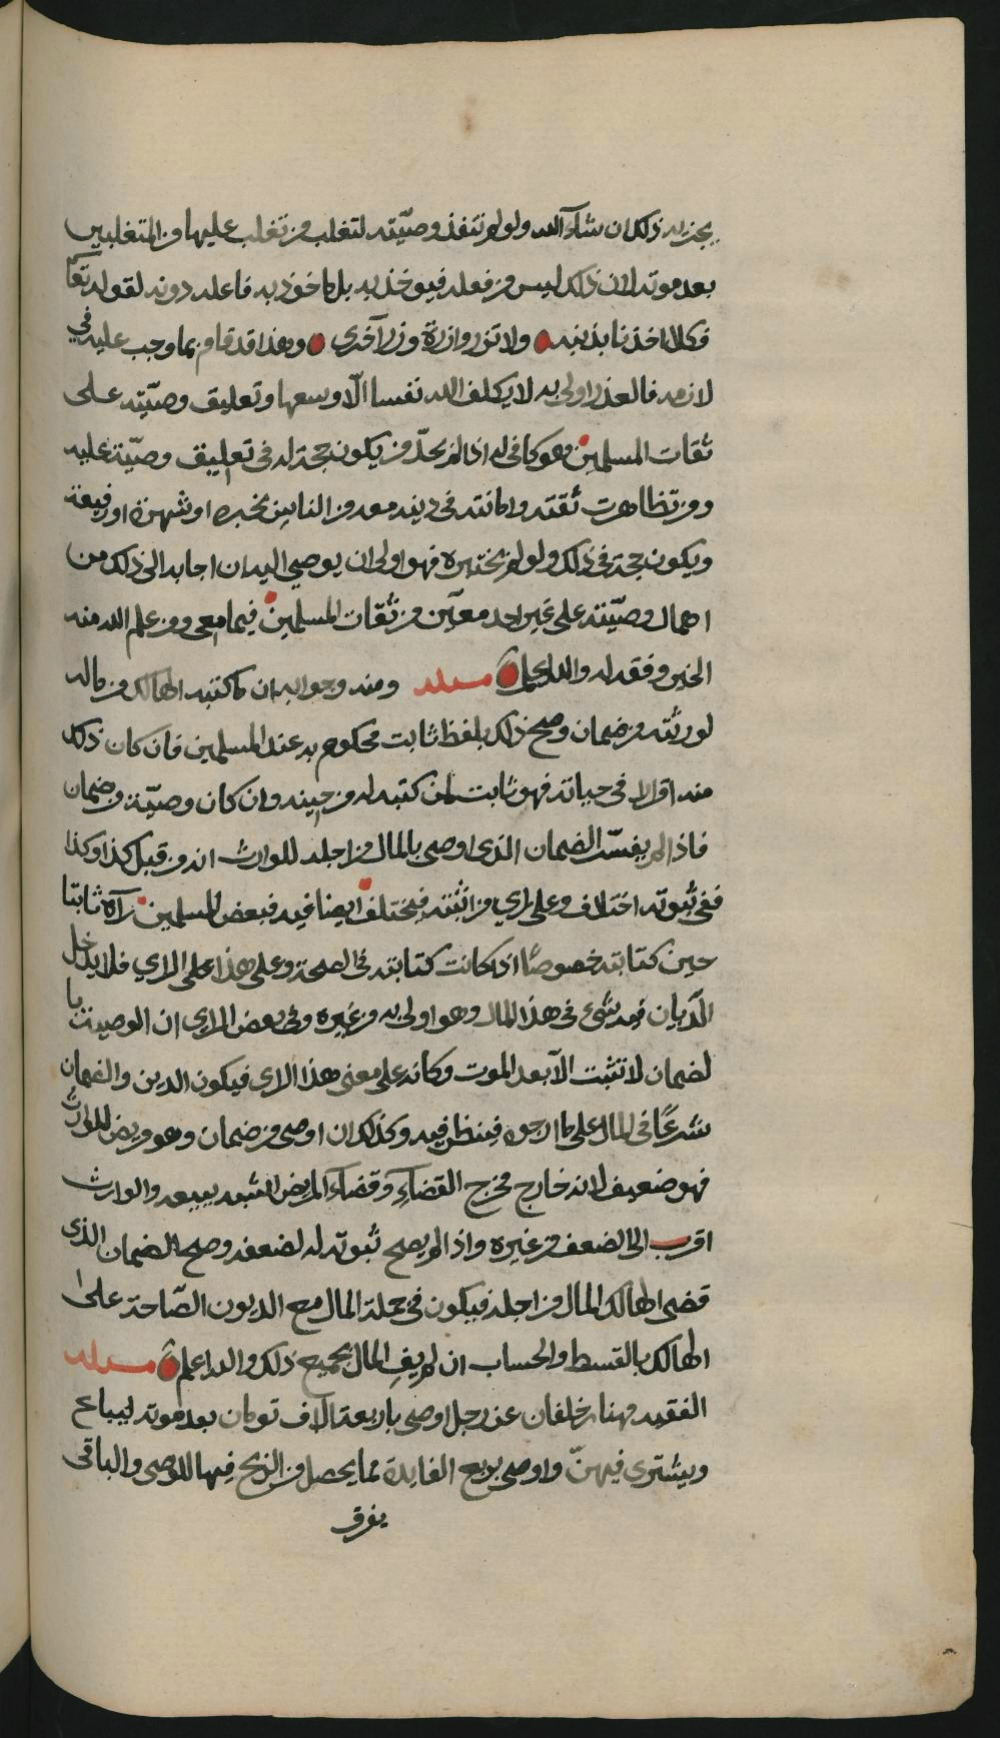 يجزيه ذلك ان شآء الله ولو لم تنفذ وصيّته لتغلب من تغلب عليها من المتغلبين
بعد موته لان ذلك ليس من فعله فيوخذ به بل ماخوذ به فاعله دونه لقوله تعا
فكلا اخذنا بذنبه ولا تزر وازرة وزر آخرى وهذا قد قام بما وجب عليه في
لازمه فالعذر اولى به لا يكلف الله نفسا الّا وسعها وتعليق وصيّته على
ثقات المسلمين وهو كافى له اذا لم يجد من يكون حجة له فى تعليق وصيّة عليه
ومن تظاهرت ثقته وامانته فى دينه معه من الناس بخبره او شهرة او رفيعة
ويكون حجة فى ذلك ولو لم يختبره فهو اولى ان يوصي اليه ان اجابه الى ذلك من
اهمال وصيّته على غير احد معيّن من ثقات المسلمين فيما معى ومن علم الله منه
الخير وفقه له والله اعلم مسئله ومنه وجوابه ان ما كتبه الهالك من ماله
لورثته من ضمان وصح ذلك بلفظ ثابت محكوم به عند المسلمين فان كان ذلك
منه اقرارا فى حياته فهو ثابت لمن كتبه له من حينه وان كان وصيّة من ضمان
فاذا لم يفسّر الضمان الذى اوصى بالمال من اجله للوارث انه من قبل كذا وكذا
ففى ثبوته اختلاف وعلى راي من اثبته فيختلف ايضا فيه فبعض المسلمين رآه ثابتا
حين كتابته خصوصًا اذا كانت كتابته فى الصحة وعلى هذا على الراي فلا يدخل
الدّيان فيه بشىء فى هذا المال وهو اولى به من غيره وفى بعض الراي ان الوصية با
لضمان لا تثبت الآ بعد الموت وكانه على معنى هذا الراى فيكون الدين والضمان
شرعًا فى المال على ما ارجوه فينظر فيه وكذلك ان اوصى من ضمان وهو مريض للوارث
فهو ضعيف لانه خارج مخرج القضآء وقضآء المريض اشبه ببيعه والوارث
اقرب الى الضعف من غيره واذا لم يصح ثبوته له لضعفه وصح الضمان الذى
قضى الهالك المال من اجله فيكون فى جملة المال مع الديون الصّاحة على
الهالك بالقسط والحساب ان لم يفِ المال بجميع ذلك والله اعلم مسئله
الفقيه مهنا بن خلفان عن رجل اوصى باربعة آلاف تومان بعد موته ليباع
ويشترى فيهنّ واوصى بربع الفايدة مما يحصل من الربح فيها للوصى والباقى
يفرق